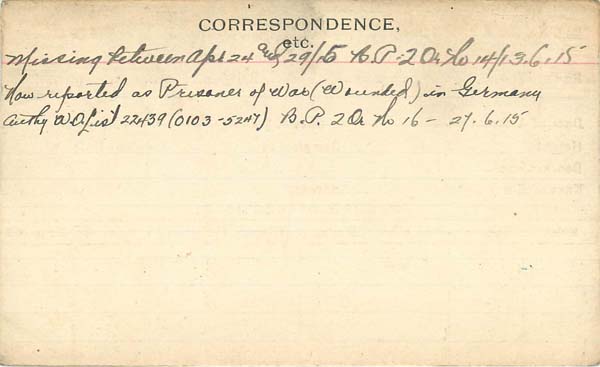 CORRESPONDENCE,
etc.
Missing between Apl 24 and 29/15 B.P. 2 Or No 14/13.6.15
Now reported as Prisoner of War (Wounded) in Germany
Authy W.O. List 22439 (0103-5247) B.P. 2 Or No 16 - 27.6.15